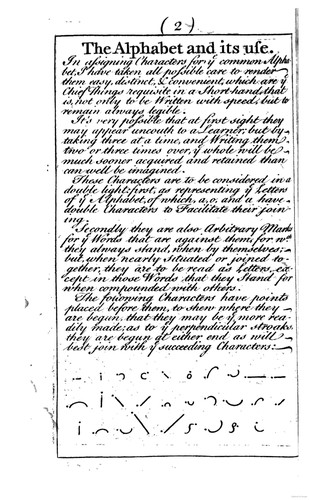 ( 2 )
The Alphabet and its use.
In assigning Characters for ẙ common Alpha-
bet, I have taken all possible care to render
them easy, distinct, & convenient, which are ẙ
Chief Things requisite in a Short-hand, that
is, not only to be Written with speed; but to
remain always legible.
It's very possible that at first sight they
may appear uncouth to a Learner; but by
taking three at a time, any Writing them
two or three times over, ẙ whole will be
much sooner acquired and retained than
can well be imagined.
These Characters are to be considered in a
double light: first, as representing ẙ Letters
of ẙ Alphabet, of which, a, o, and u have
double Characters to Facilitate their join-
ing.
Secondly they are also Arbitrary Marks
for ẙ Words that are against them, for wch
they always stand, when by themselves:
but, when nearly Situated or joined to-
gether, they are to be read as Letters, ex-
cept in those Words that they Stand for
when compounded with others.
The following Characters have points
placed before them, to shew where they
are begun, that they may be ẙ more rea-
dily made; as to ẙ perpendicular Stroaks
they are begun at either end as will
best join with ẙ succeeding Characters: